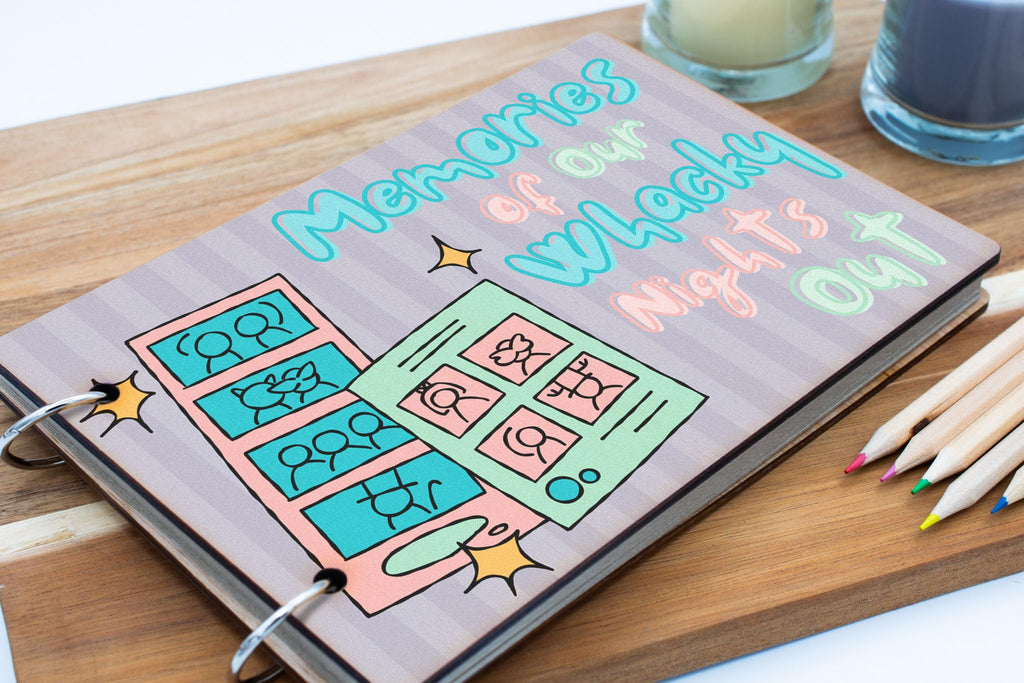 Memories
of Our
Whacky
Nights
Out